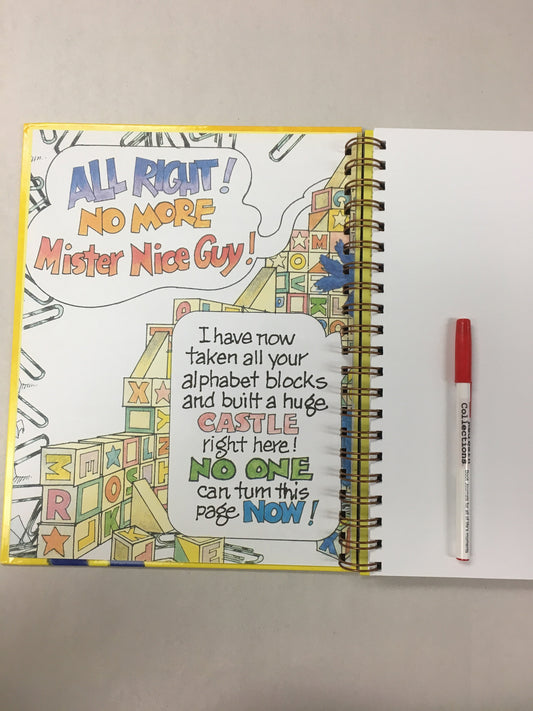 ALL RIGHT!
NO MORE
Mister Nice Guy!
I have now
taken all your
alphabet blocks
and built a huge
CASTLE
right here!
NO ONE
can turn this
page NOW!
Collections